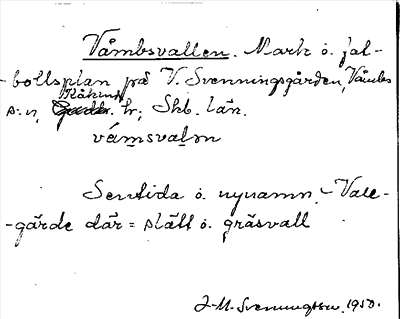 Våmbsvallen. Mark o. fot-
-bollsplan på V. Svenningsgården, Våmbs
Kåkinds
s:n, hr; Skb. län.
våmsvaln
Sentida o. nynamn. – Vall-
-gärde där = slätt o. gräsvall
J-M. Svenningsson. 1950.